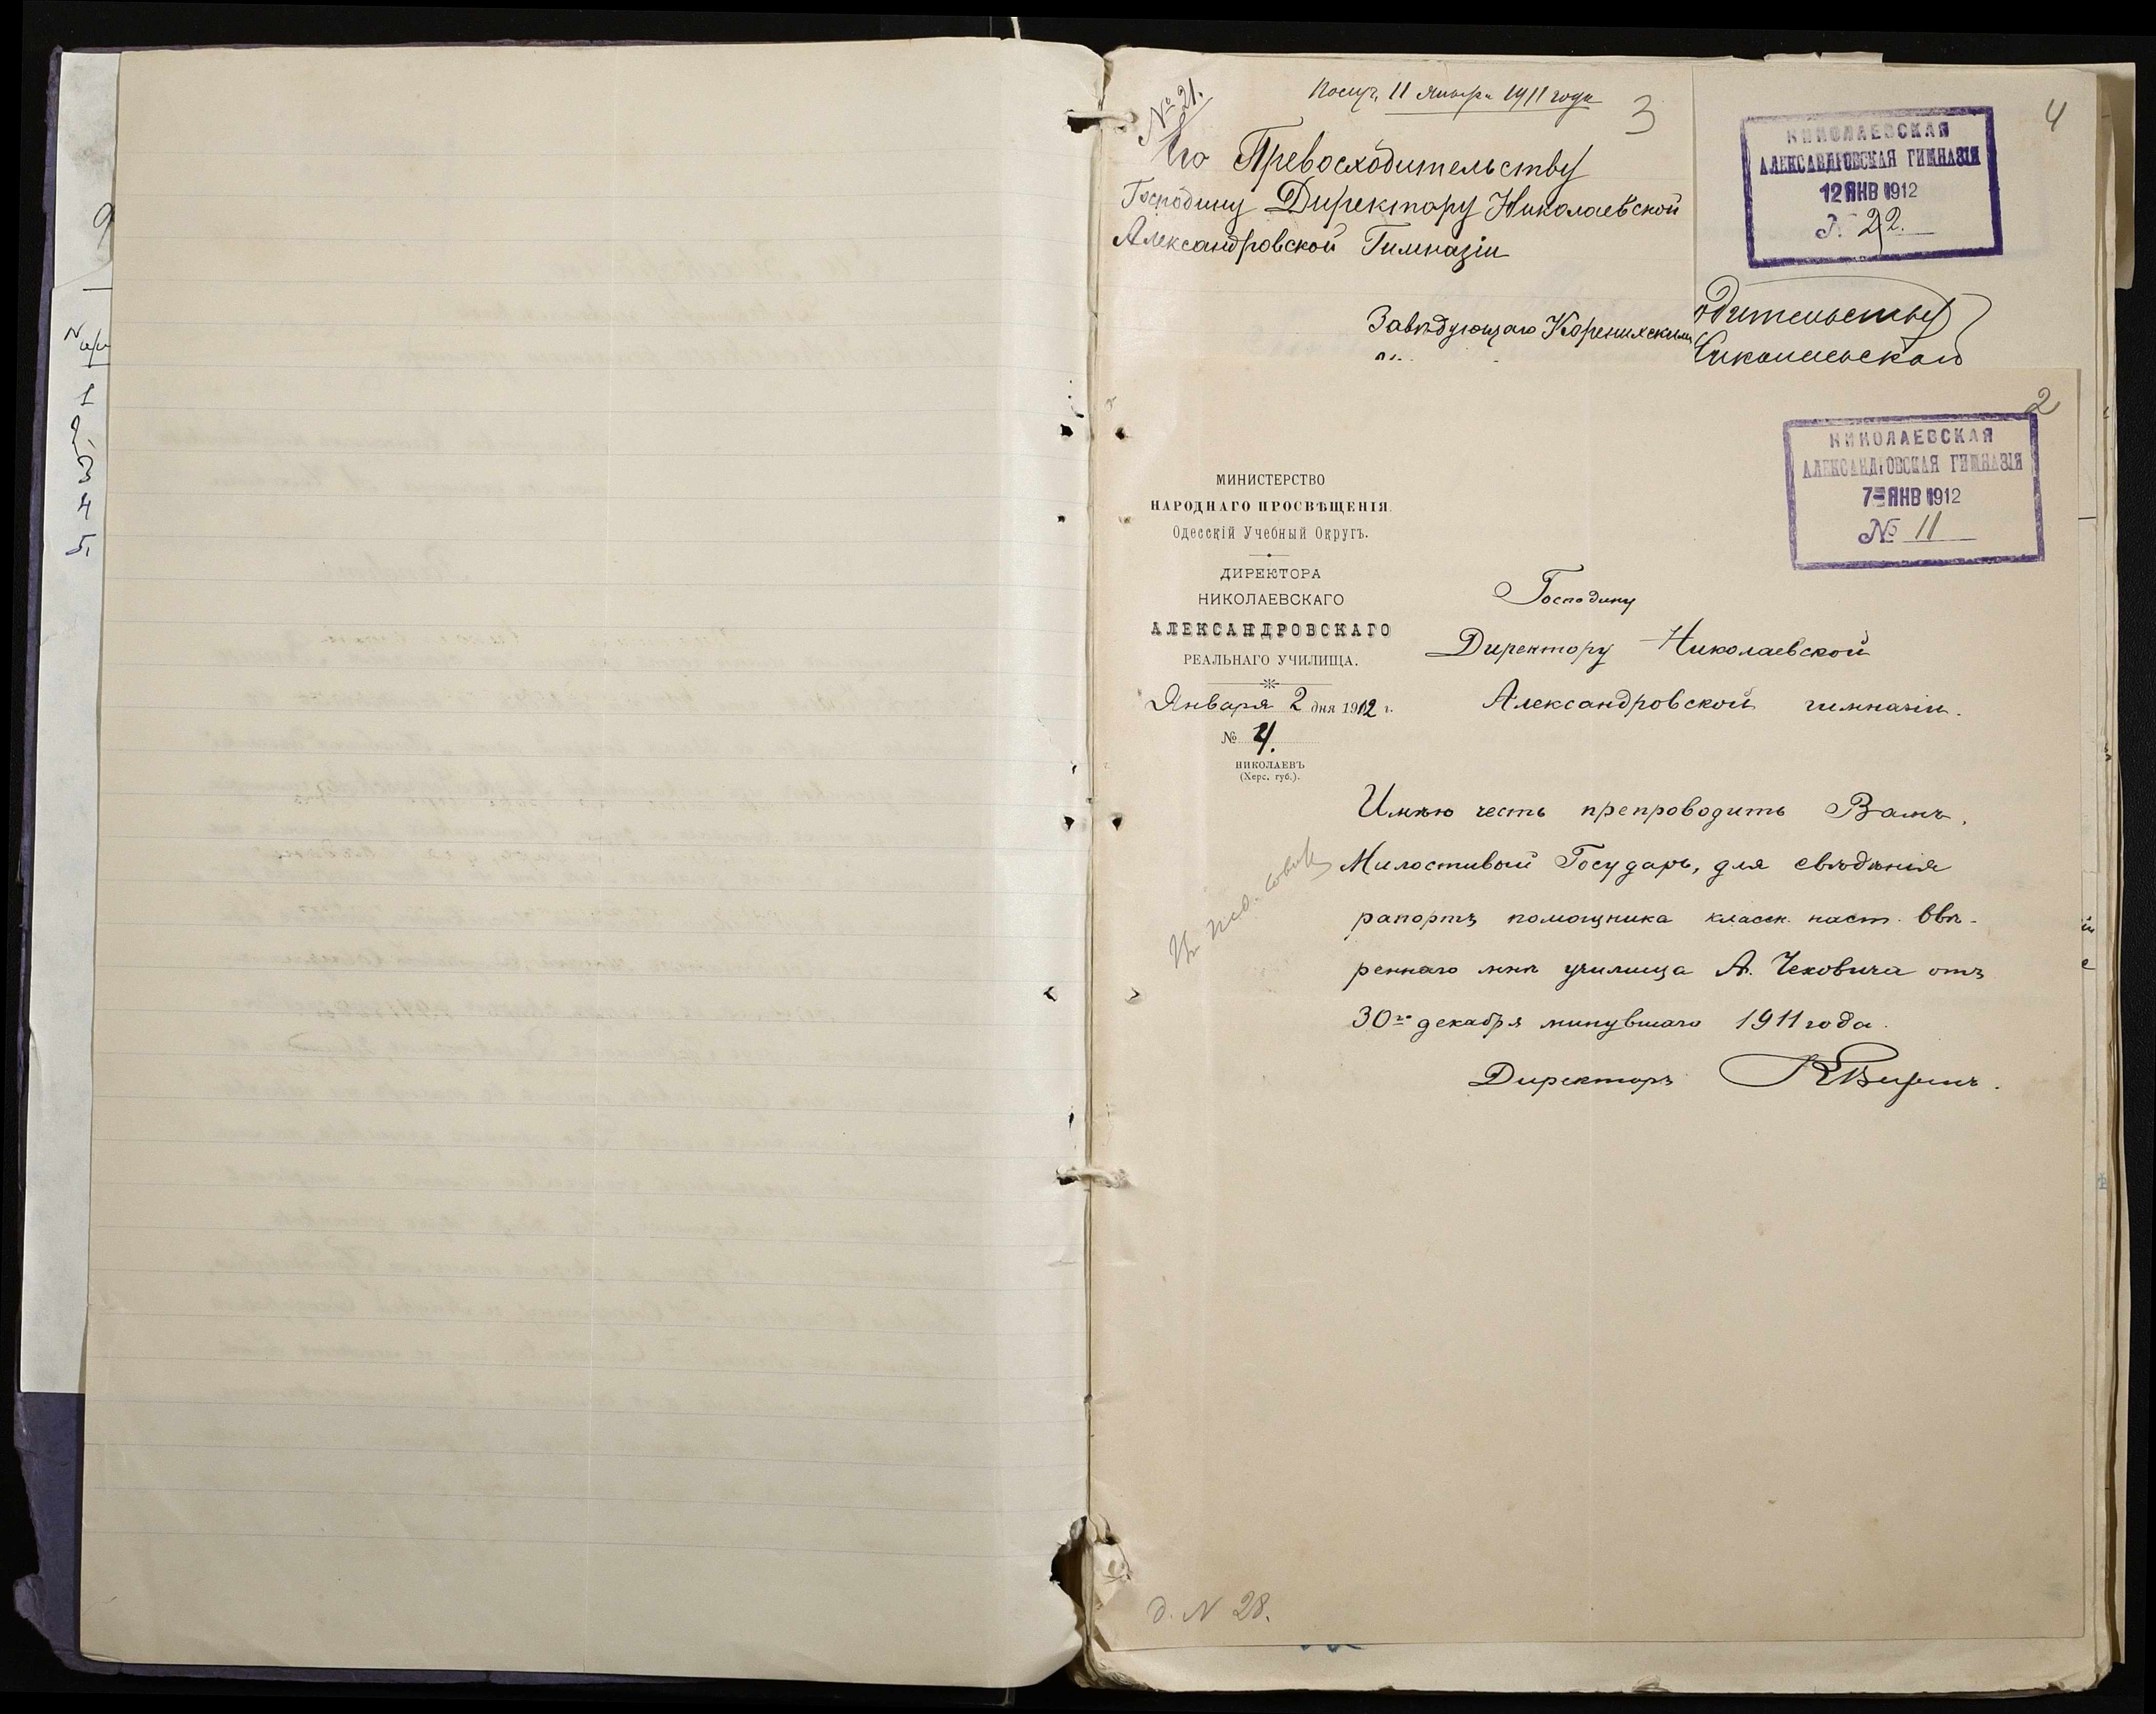 N
1
2.
3
4
5.
№ 21.
Получ. 11 января 1911 года
3
Его Превосходительству
Господину Директору Николаевской
Александровской Гимназіи
Завѣдующаго Коренихскимъ
4
НИКОЛАЕВСКАЯ
АЛЕКСАНДРОВСКАЯ ГИМНАЗІЯ
12 ЯНВ 1912
№ 22.
одительству
Николаевской
2
НИКОЛАЕВСКАЯ
АЛЕКСАНДРОВСКАЯ ГИМНАЗІЯ
7 ЯНВ 1912
№ 11
МИНИСТЕРСТВО
НАРОДНАГО ПРОСВѢЩЕНІЯ.
Одесскій Учебный Округъ.
ДИРЕКТОРА
НИКОЛАЕВСКАГО
АЛЕКСАНДРОВСКАГО
РЕАЛЬНАГО УЧИЛИЩА.
Января 2 дня 1912 г.
№ 4.
НИКОЛАЕВЪ
(Херс. губ.).
Господину
Директору Николаевской
Александровской гимназіи.
Имѣю честь препроводить Вамъ,
Милостивый Государь, для свѣдѣнія
рапортъ помощника класск. наст. ввѣ-
реннаго мнѣ училища А. Чековича отъ
30го декабря минувшаго 1911 года.
Директоръ
Въ пед. советъ
д. N 28.